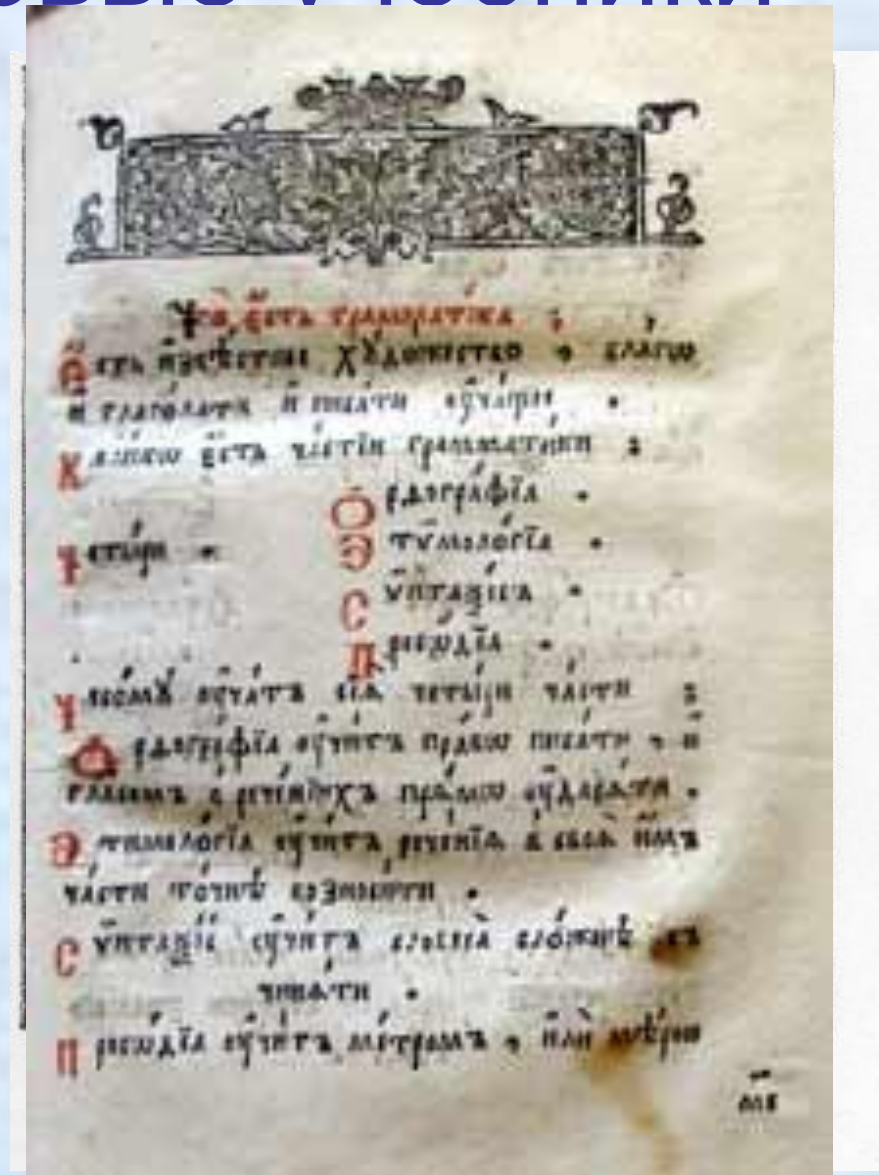 Что̀ є҆́сть грамма́тїка ;
Є҆́сть и҆звѣ́стное хꙋдо́жество , бла́гѡ
и҆ глаго́лати и҆ писа́ти ᲂу҆ча́щее .
Коли́кѡ є҆́сть часті́й грамма́тїки ;
Ѻ҆рѳогра́фїа .
Четы́ри . Э҆тѷмоло́гїа .
Сѷ́нтаѯїсъ .
Просѡ́дїа .
Чесомꙋ̀ ᲂу҆ча́тъ сїѧ̑ четы́ри ча̑сти ;
Ѻ҆рѳогра́фїа ᲂу҆чи́тъ пра́вѡ писа́ти , и҆
гла́сомъ в̾ рече́нїихъ пра́мѡ ᲂу҆дарѧ́ти .
Э҆тѷмоло́гїа ᲂу҆чи́тъ рече́нїѧ в̾ своѧ̑ и҆̀мъ
ча̑сти то́чнѣ возноси́ти .
Сѷ́нтаѯїсъ ᲂу҆чи́тъ словеса̀ сло́жнѣ съ
чинѧ́ти .
Просѡ́дїа ᲂу҆чи́тъ ме́тромъ , и҆лѝ мѣ́рою